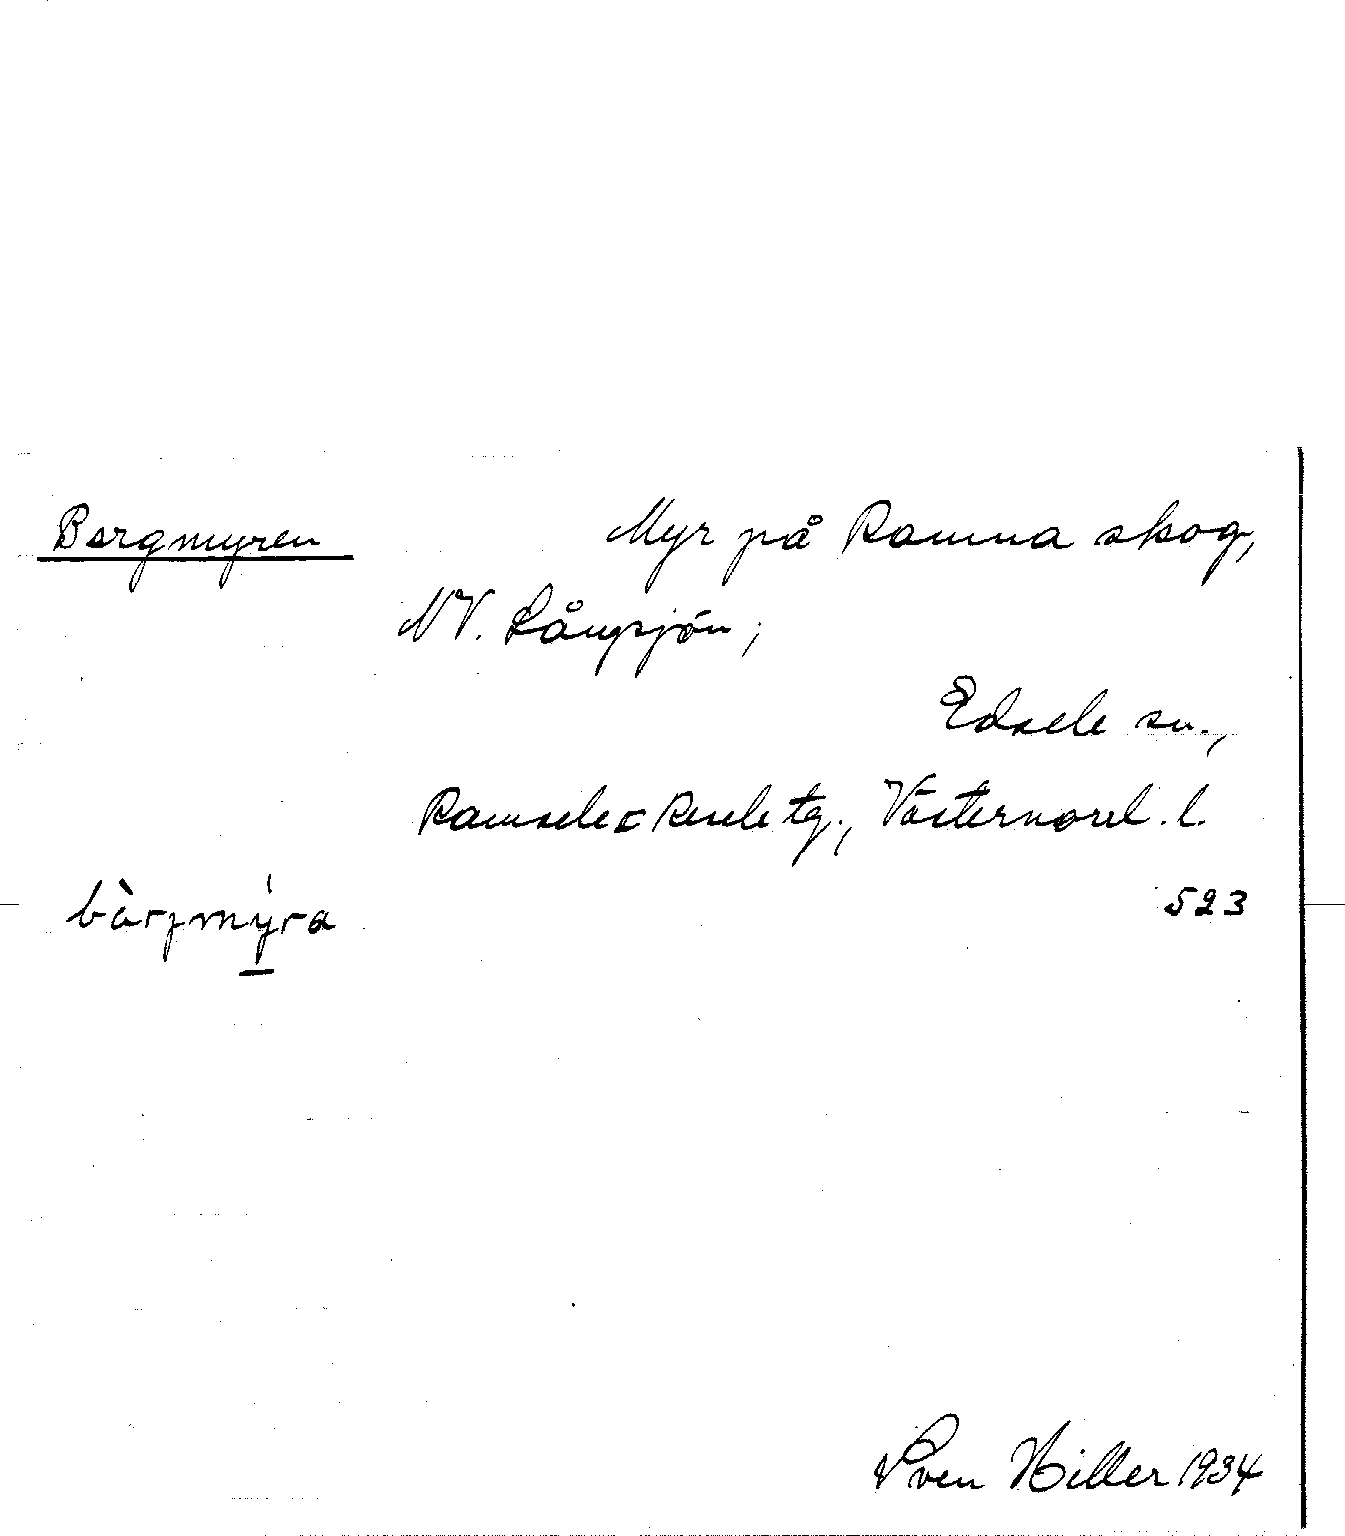 Bergmyren Myr på Ramna skog,
NV. Långsjön;
Edsele sn.,
Ramsele o Resele tg., Västernorrl. l.
bàrjmýra 523
Sven Hiller 1934